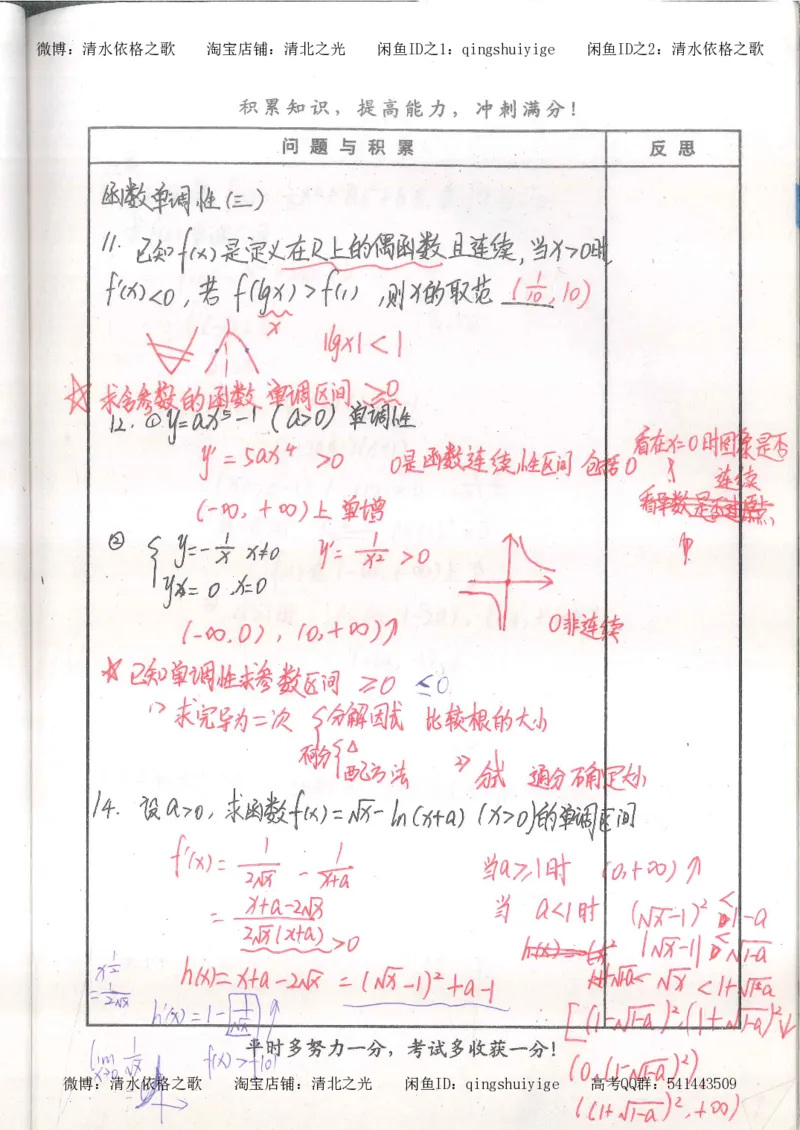 微博：清水依格之歌 淘宝店铺：清北之光 闲鱼ID之1：qingshuiyige 闲鱼ID之2：清水依格之歌
积累知识，提高能力，冲刺满分！
问题与积累 反思
函数单调性(三)
11. 已知f(x)是定义在R上的偶函数且连续,当x>0时
f'(x)<0, 若 f(lgx)>f(1), 则x的取范 (1/10, 10)
x
|lgx|<1
☆求含参数的函数 单调区间 ≥0
12. ① y=ax⁵-1 (a>0) 单调性
y'=5ax⁴ >0 0是函数连续性区间 包括0
看在x=0时图象是否
连续
看导数是否过原点
(-∞, +∞)上 单增
② { y=-1/x x≠0 y'=1/x² >0
yx=0 x=0
(-∞,0), (0,+∞)↗ 0非连续
☆已知单调性求参数区间 ≥0 ≤0
1> 求完导为二次 { 分解因式 比较根的大小
{△
配方法 2> 分式 通分确定大小
14. 设a>0, 求函数f(x)=√x-ln(x+a) (x>0)的单调区间
f'(x)=1/(2√x) - 1/(x+a) 当a≥1时 (0,+∞)↗
=(x+a-2√x)/(2√x(x+a)) >0 当 a<1时 (√x-1)²<1-a
|√x-1|<√1-a
h(x)=x+a-2√x=(√x-1)²+a-1
√x<1+√1-a
x^(1/2)
=1/(2√x)
h'(x)=1-1/√x
[(1-√1-a)²,(1+√1-a)²]↓
平时多努力一分，考试多收获一分！
lim x→0 1/√x
(0,(1-√1-a)²)
((1+√1-a)²,+∞)
微博：清水依格之歌 淘宝店铺：清北之光 闲鱼ID：qingshuiyige 高考QQ群：541443509